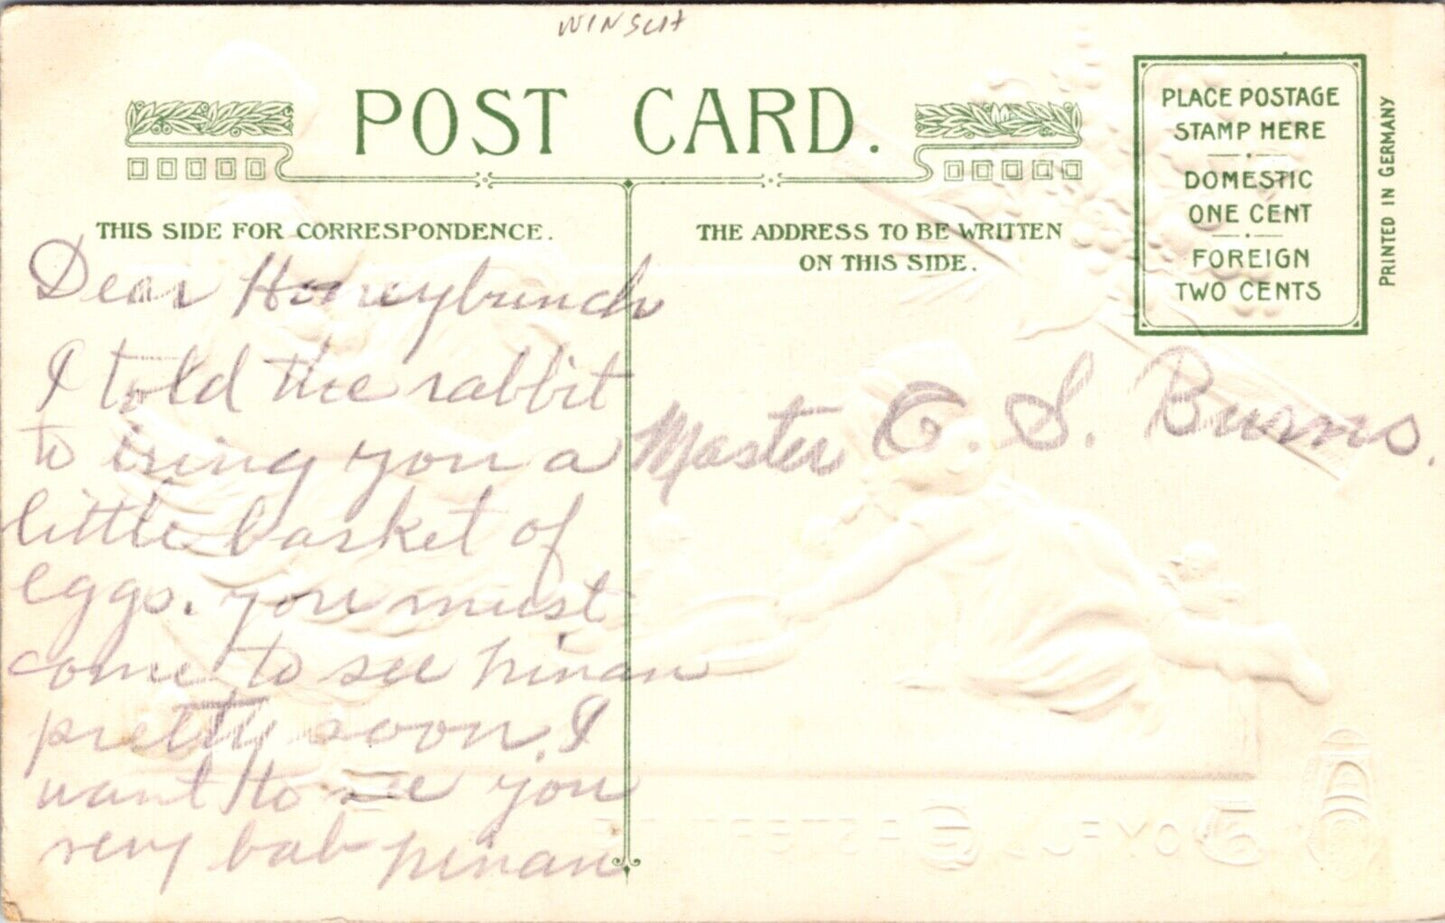 WINSCH
POST CARD.
PLACE POSTAGE
STAMP HERE
DOMESTIC
ONE CENT
FOREIGN
TWO CENTS
PRINTED IN GERMANY
THIS SIDE FOR CORRESPONDENCE.
THE ADDRESS TO BE WRITTEN
ON THIS SIDE.
Dear Honeybunch
I told the rabbit
to bring you a
little basket of
eggs. you must
come to see ninan
pretty soon. I
want to see you
very bab ninan
Master C. S. Burns.